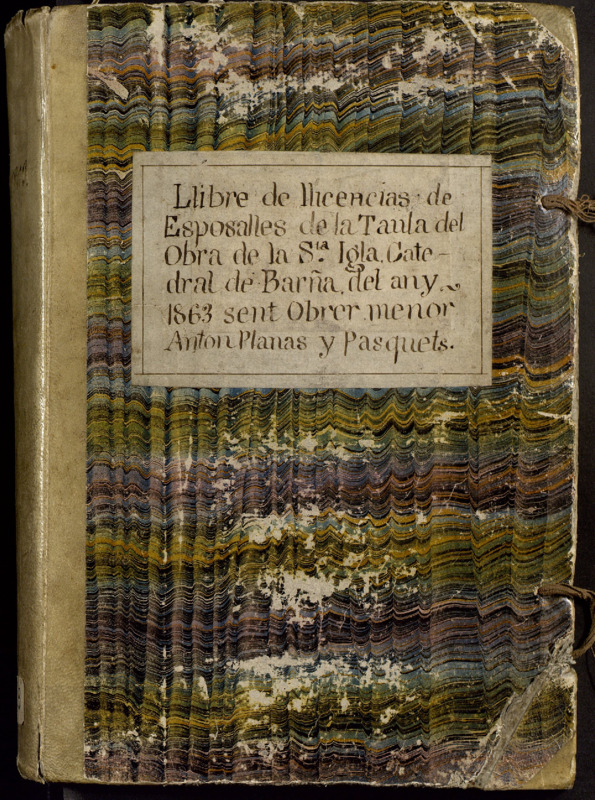 Llibre de llicencias de
Esposalles de la Taula del
Obra de la S.ta Igla. Cate-
dral de Barña, del any
1863 sent Obrer menor
Anton Planas y Pasquets.